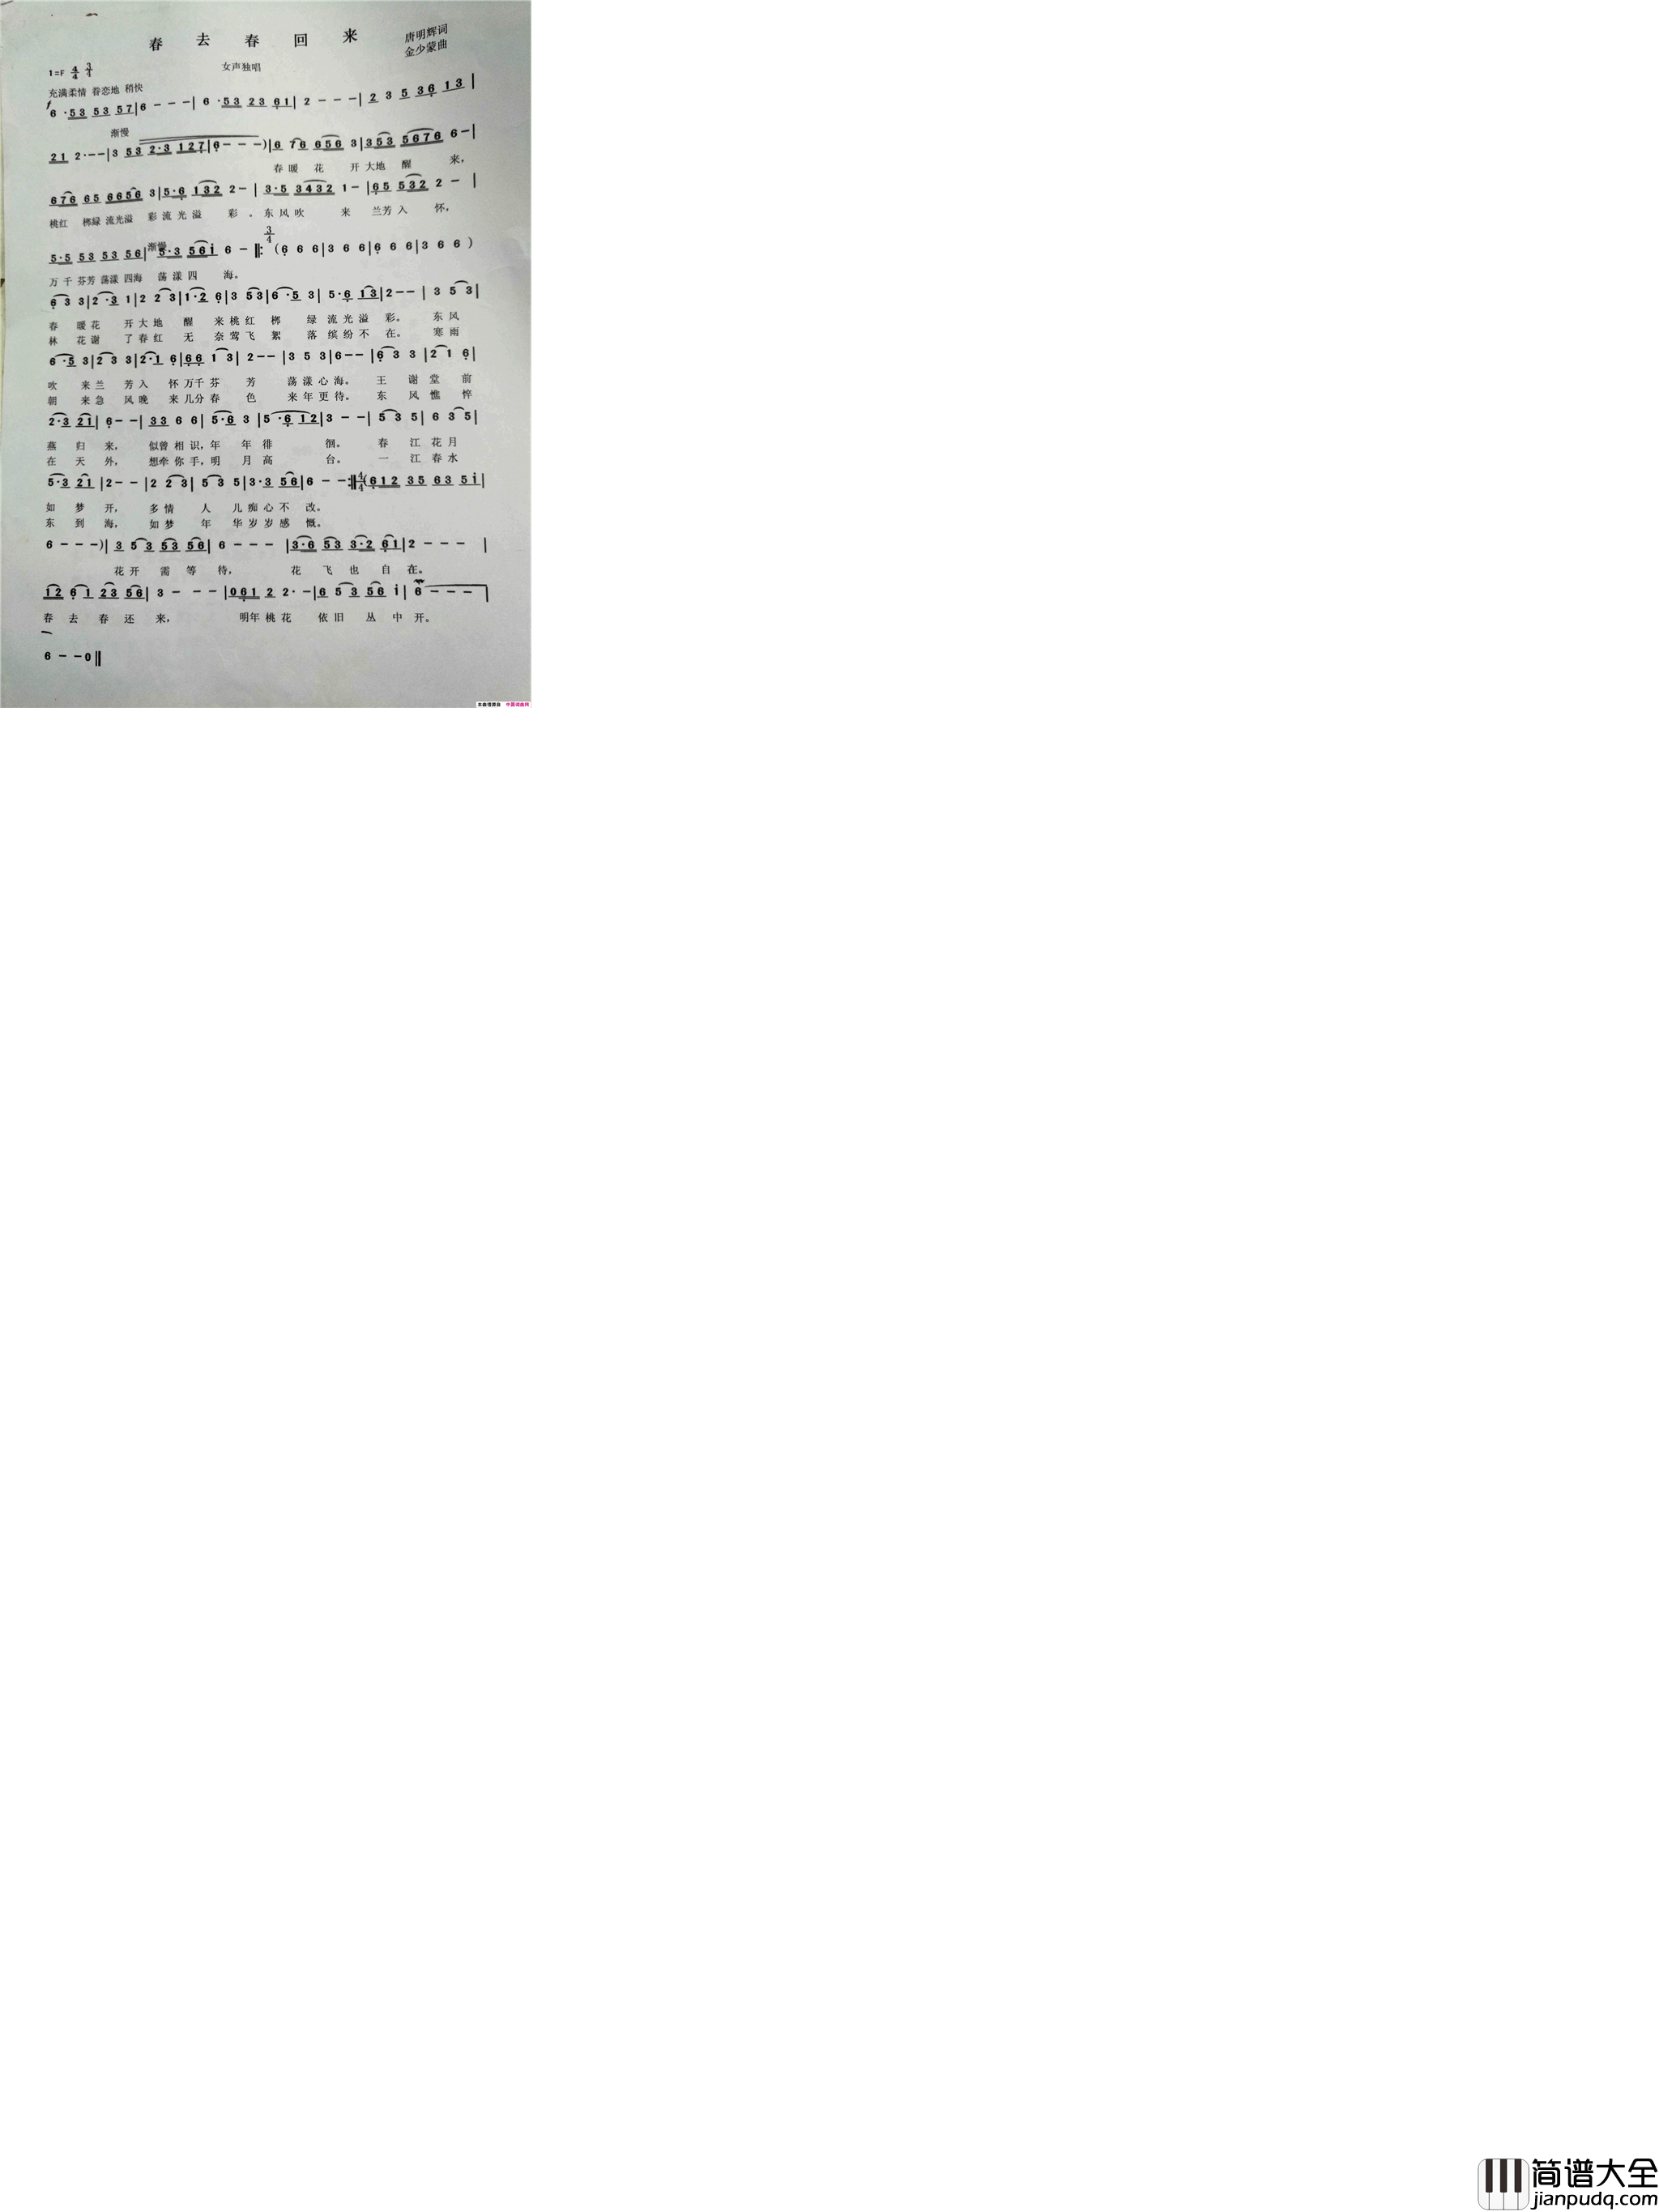 春 去 春 回 来
唐明辉词
金少蒙曲
女声独唱
1=F 4/4 3/4
充满柔情 眷恋地 稍快
6 ·53 53 57|6 - - -|6 ·53 23 61|2 - - -|2 3 5 36 13|
渐慢
21 2·--|3 53 2·3 127|6 - - -)|6 76 656 3|353 5676 6-|
春 暖 花 开 大地 醒 来，
676 65 6656 3|5·6 132 2-|3·5 3432 1-|65 532 2 -|
桃红 梆緑 流光溢 彩 流 光 溢 彩 。东 风 吹 来 兰芳 入 怀，
3/4
渐慢
5·5 53 53 56|5·3 56i 6 - ‖:(6 6 6|3 6 6|6 6 6|3 6 6 )
万 千 芬芳 荡漾 四海 荡 漾 四 海。
6 3 3|2 ·3 1|2 2 3|1·2 6|3 53|6 ·5 3|5·6 13|2--|3 5 3|
春 暖 花 开 大 地 醒 来 桃 红 梆 绿 流 光 溢 彩。 东 风
林 花 谢 了 春 红 无 奈 莺 飞 絮 落 缤 纷 不 在。 寒 雨
6 ·5 3|2 3 3|2·1 6|66 1 3|2--|3 5 3|6--|6 3 3|2 1 6|
吹 来 兰 芳 入 怀 万千 芬 芳 荡 漾 心 海。 王 谢 堂 前
朝 来 急 风 晚 来 几分 春 色 来 年 更 待。 东 风 憔 悴
2·3 21|6--|33 6 6|5·6 3|5 ·6 12|3 - -|5 3 5|6 3 5|
燕 归 来， 似曾 相 识，年 年 徘 徊。 春 江 花 月
在 天 外， 想牵 你 手，明 月 高 台。 一 江 春 水
5·3 21|2- -|2 2 3|5 3 5|3·3 56|6 - -:‖4/4(612 35 63 5i|
如 梦 开， 多 情 人 儿 痴 心 不 改。
东 到 海， 如 梦 年 华 岁 岁 感 慨。
6 - - -)|3 5 3 53 56|6 - - -|3·6 53 3·2 61|2 - - -|
花 开 需 等 待， 花 飞 也 自 在。
12 6 1 23 56|3 - - -|061 2 2· -|6 5 3 56 i|6 - - -|
春 去 春 还 来， 明年 桃 花 依 旧 丛 中 开。
6 - -0‖
本曲谱源自 中国词曲网
简谱大全
jianpudq.com